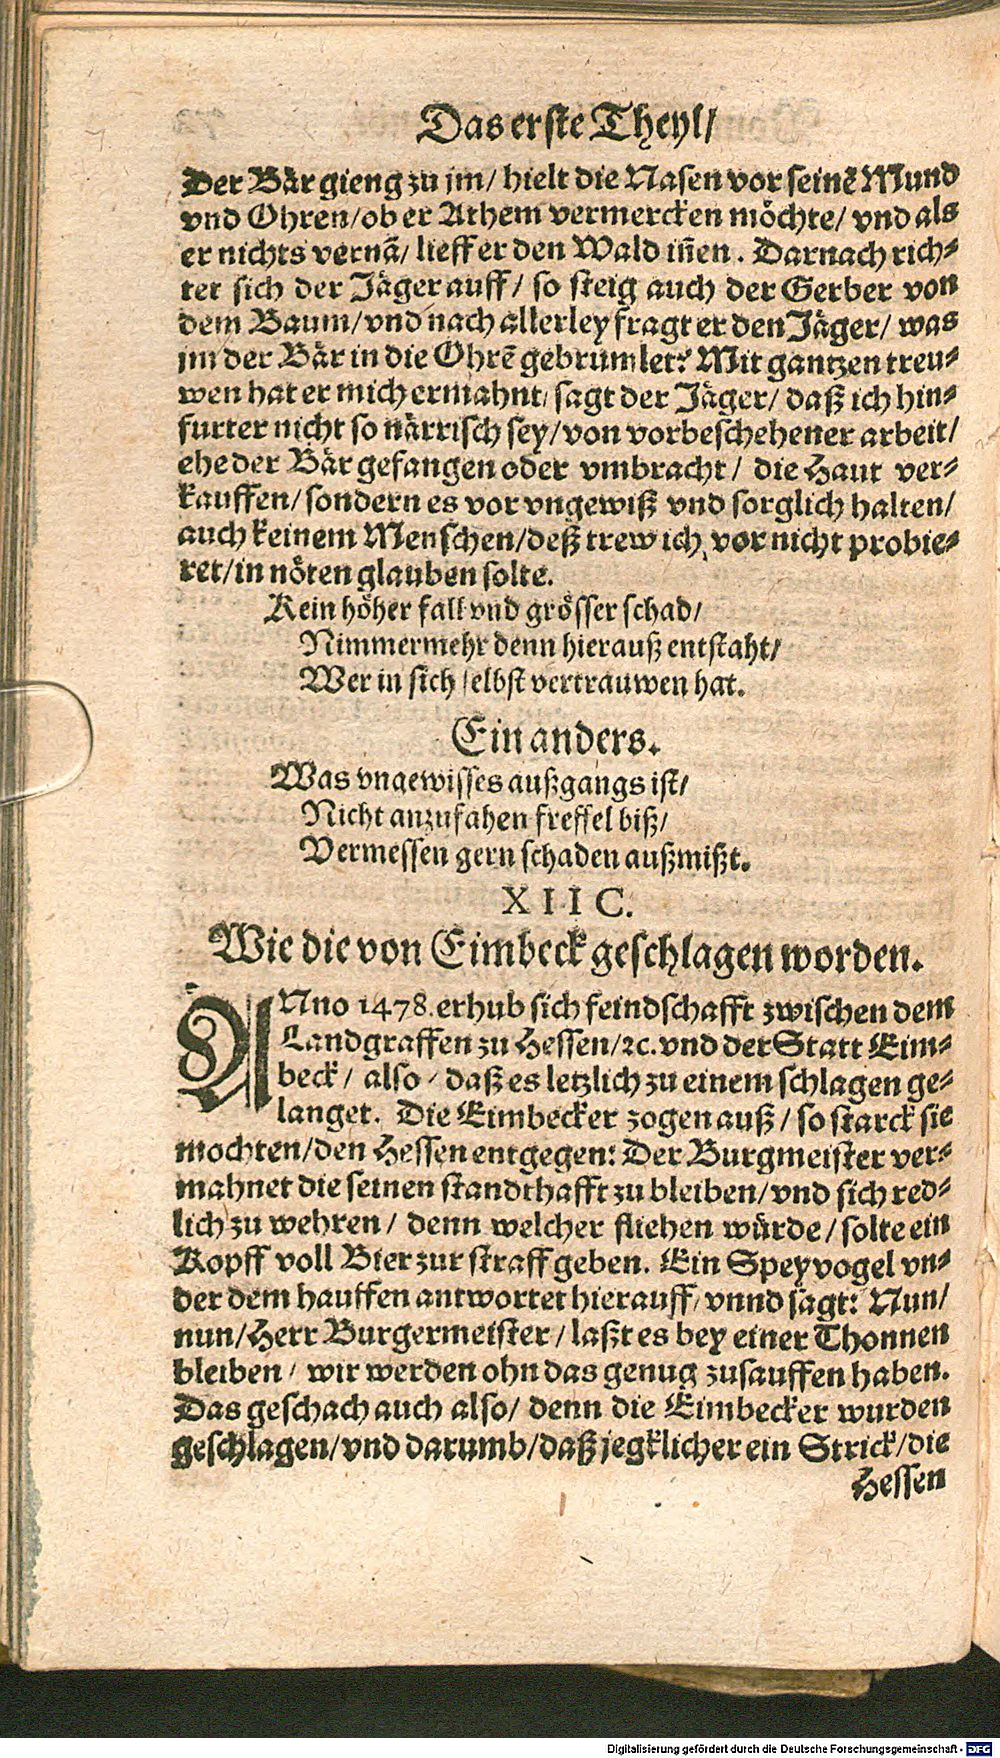 Das erste Theyl/
Der Bär gieng zu jm/ hielt die Nasen vor seinẽ Mund
vnd Ohren/ob er Athem vermercken möchte/ vnd als
er nichts vernã/ lieff er den Wald iñen. Darnach rich-
tet sich der Jäger auff/ so steig auch der Gerber von
dem Baum/vnd nach allerley fragt er den Jäger/ was
jm der Bär in die Ohrẽ gebrumlet? Mit gantzen treu-
wen hat er mich ermahnt/ sagt der Jäger/ daß ich hin-
furter nicht so närrisch sey/von vorbeschehener arbeit/
ehe der Bär gefangen oder vmbracht/ die Haut ver-
kauffen/sondern es vor vngewiß vnd sorglich halten/
auch keinem Menschen/deß trew ich vor nicht probie-
ret/in nöten glauben solte.
Kein höher fall vnd grösser schad/
Nimmermehr denn hierauß entstaht/
Wer in sich selbst vertrauwen hat.
Ein anders.
Was vngewisses außgangs ist/
Nicht anzufahen freffel biß/
Vermessen gern schaden außmißt.
XIIC.
Wie die von Eimbeck geschlagen worden.
ANno 1478. erhub sich feindschafft zwischen dem
Landgraffen zu Hessen/ꝛc. vnd der Statt Eim-
beck/ also/ daß es letzlich zu einem schlagen ge-
langet. Die Eimbecker zogen auß/ so starck sie
mochten/den Hessen entgegen: Der Burgmeister ver-
mahnet die seinen standthafft zu bleiben/vnd sich red-
lich zu wehren/ denn welcher fliehen würde/solte ein
Kopff voll Bier zur straff geben. Ein Speyvogel vn-
der dem hauffen antwortet hierauff/ vnnd sagt: Nun/
nun/Herr Burgermeister/laßt es bey einer Thonnen
bleiben/ wir werden ohn das genug zusauffen haben.
Das geschach auch also/ denn die Eimbecker wurden
geschlagen/vnd darumb/daß jegklicher ein Strick/die
Hessen
Digitalisierung gefördert durch die Deutsche Forschungsgemeinschaft - DFG